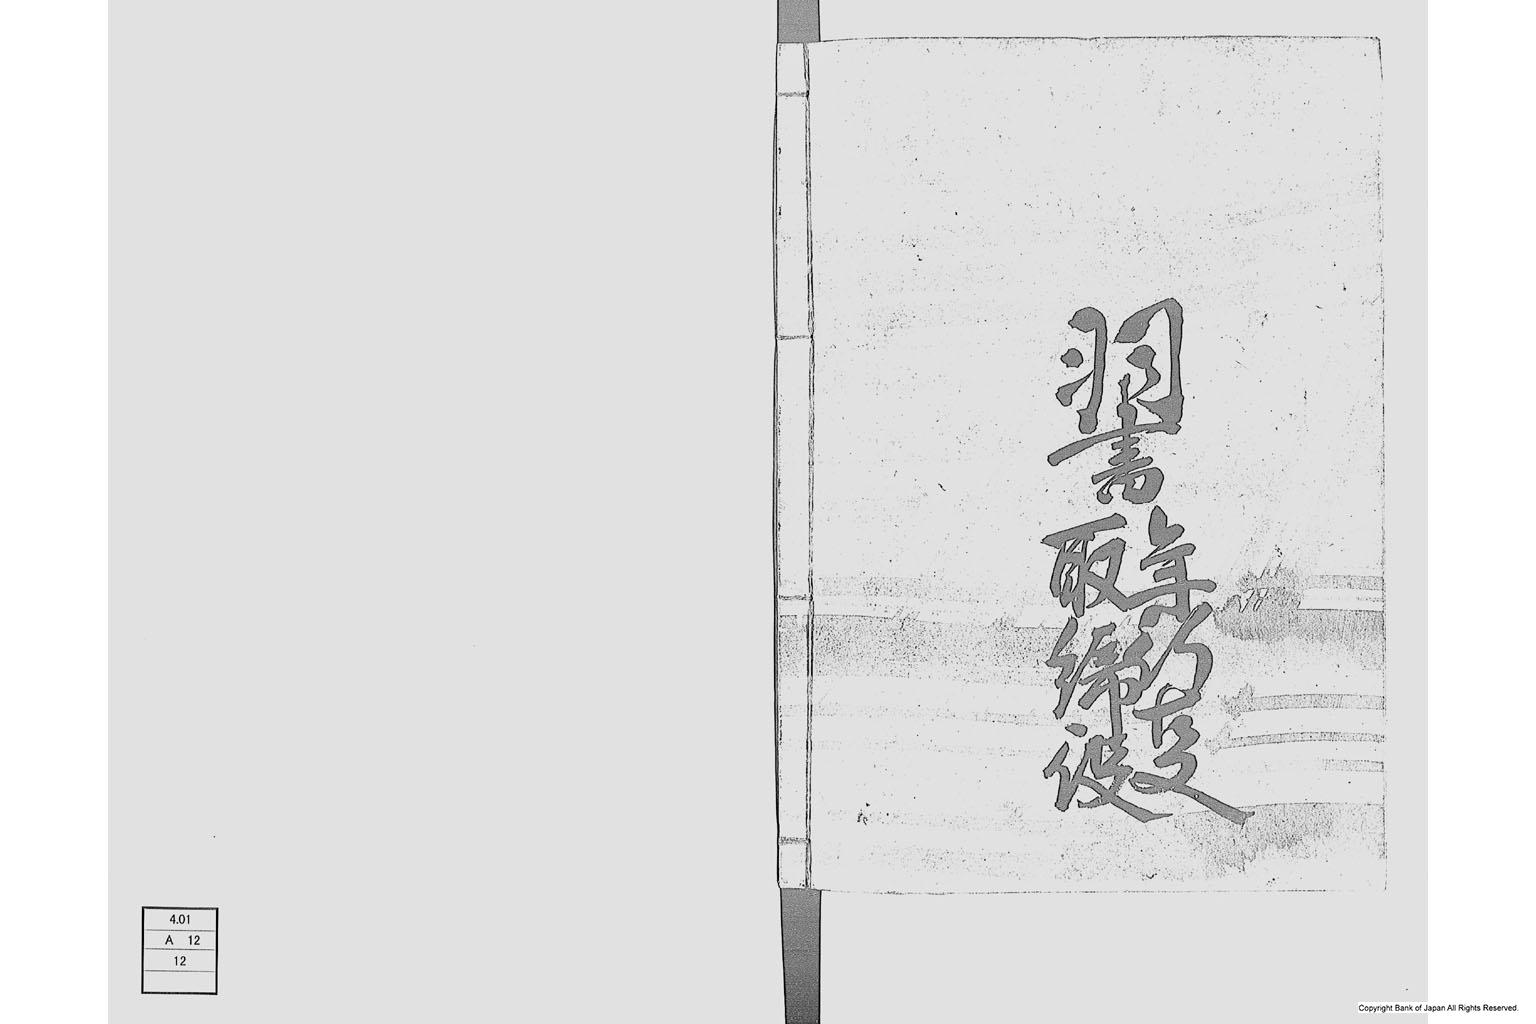 羽書
年行事
取締役
4.01
A 12
12
Copyright Bank of Japan All Rights Reserved.